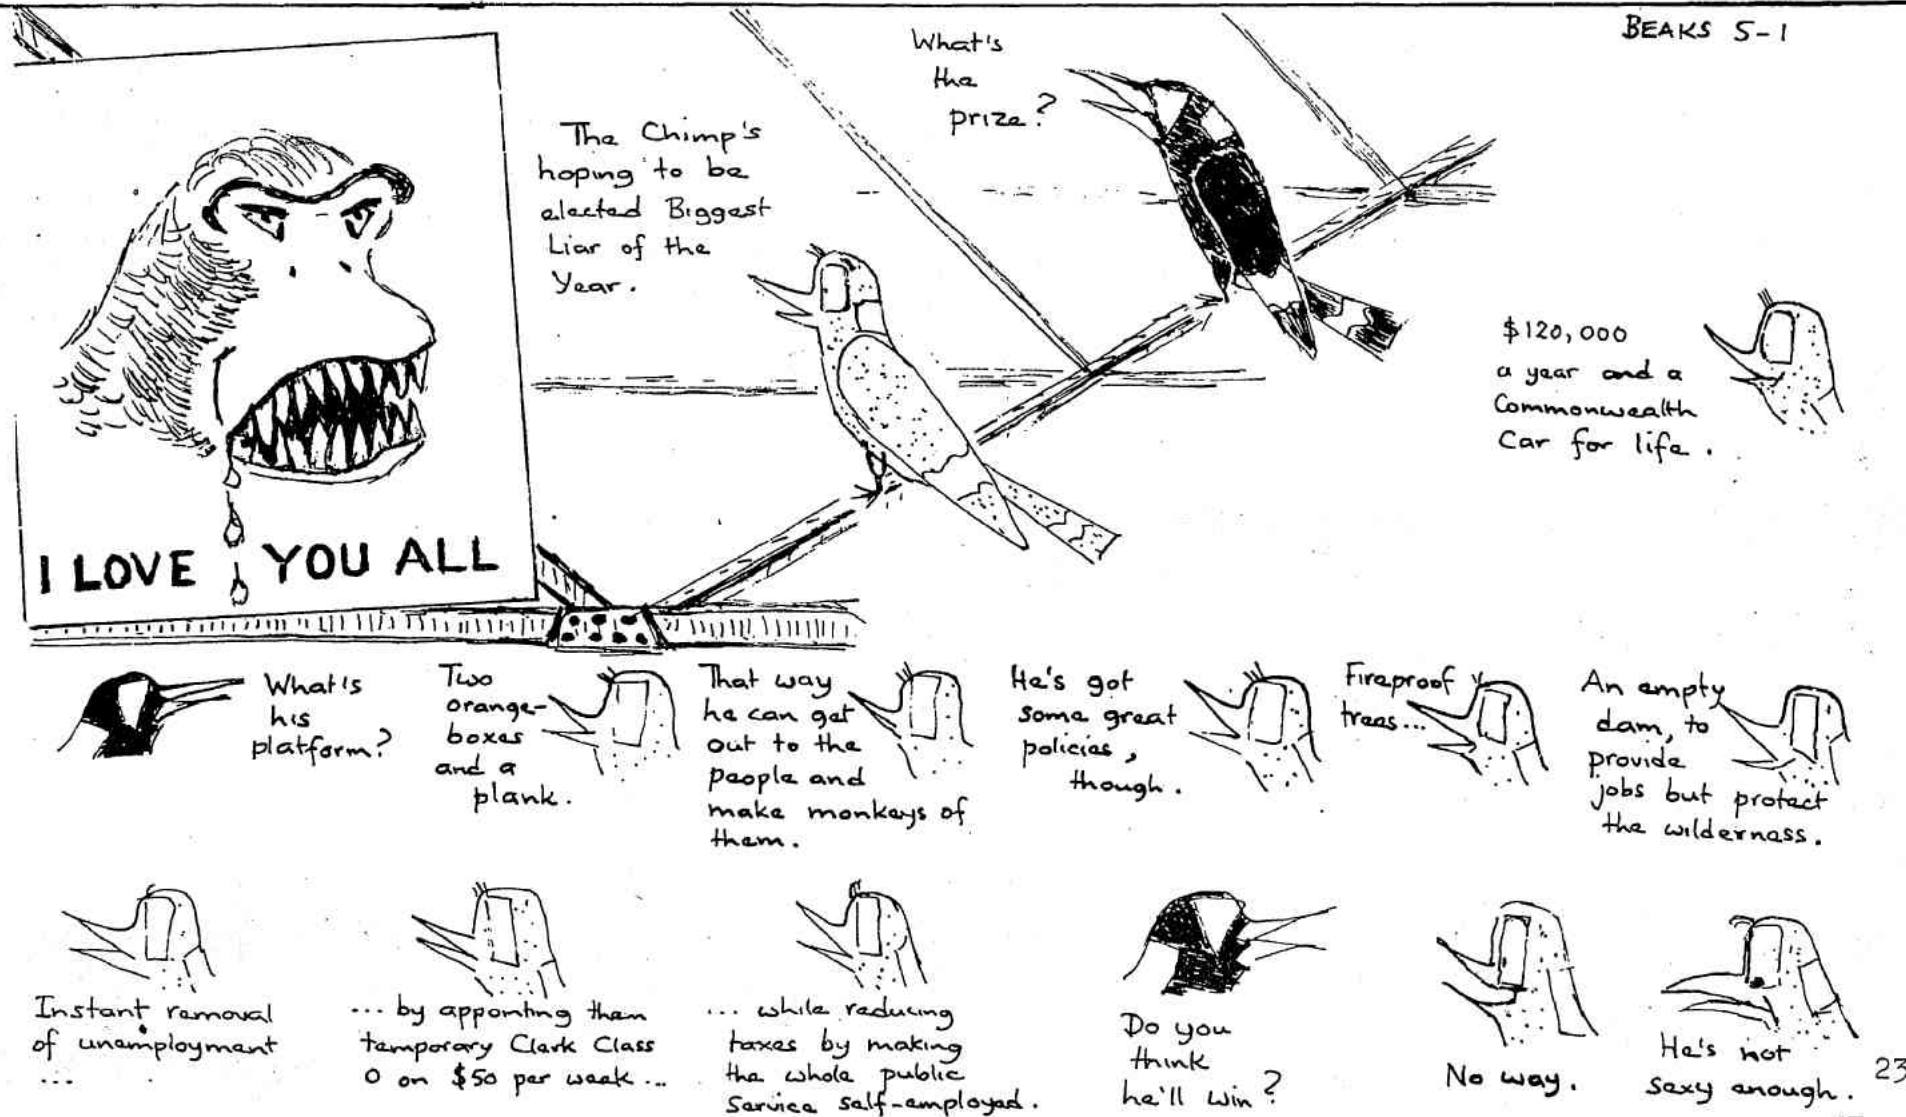 BEAKS 5-1
I LOVE YOU ALL
The Chimp's
hoping to be
elected Biggest
Liar of the
Year.
What's
the
prize?
$120,000
a year and a
Commonwealth
Car for life.
What's
his
platform?
Two
orange-
boxes
and a
plank.
That way
he can get
out to the
people and
make monkeys of
them.
He's got
some great
policies,
though.
Fireproof
trees...
An empty
dam, to
provide
jobs but protect
the wilderness.
Instant removal
of unemployment
...
... by appointing them
temporary Clerk Class
0 on $50 per week ...
... while reducing
taxes by making
the whole public
service self-employed.
Do you
think
he'll win?
No way.
He's not
sexy enough.
23